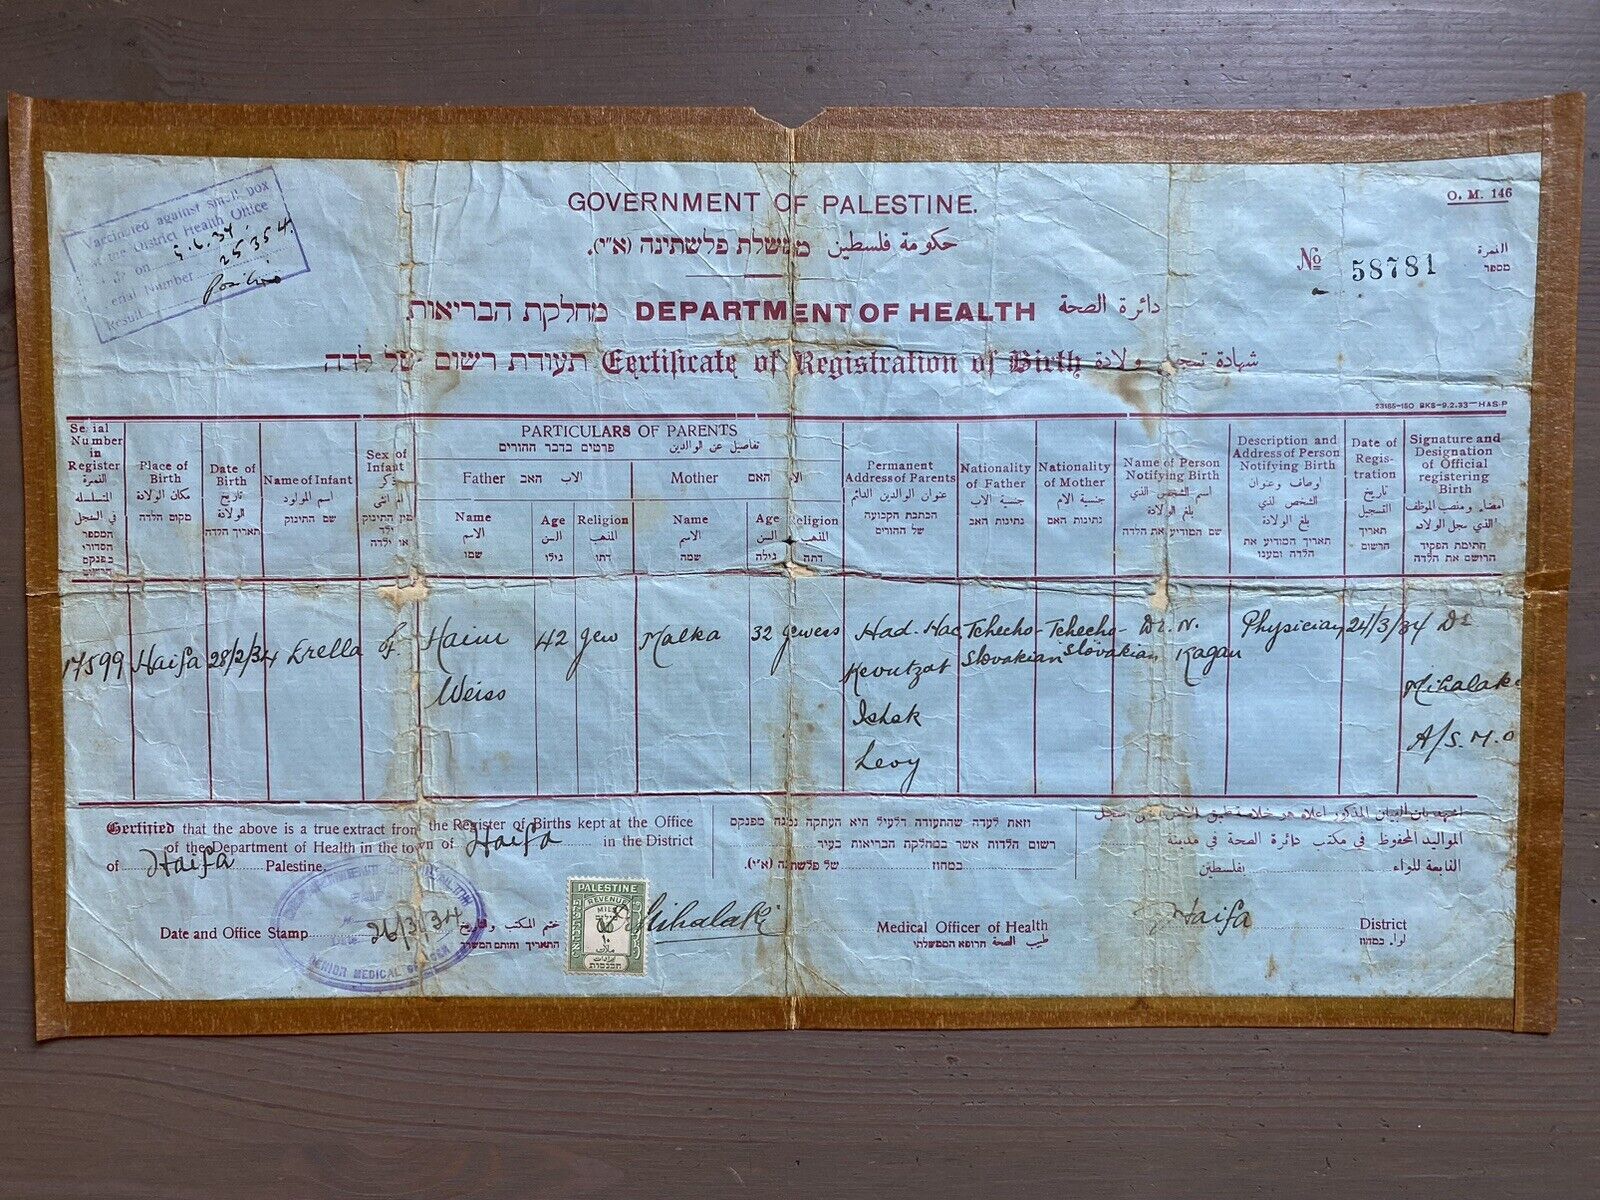 Vaccinated against small pox
District Health Office
on 5.6.34.
Serial Number 25354.
Result Positive
GOVERNMENT OF PALESTINE.
ממשלת פלשתינה (א"י). حكومة فلسطين
O. M. 146
No 58781 النمرة
מספר
מחלקת הבריאות. DEPARTMENT OF HEALTH دائرة الصحة
תעודת רשום של לדה Certificate of Registration of Birth شهادة تسجيل ولادة
23165-150 BKS-9.2.33-HAS-P
Serial Number in Register
النمرة المتسلسلة في السجل
המספר הסדורי בפנקס הרשום
Place of Birth
مكان الولادة
מקום הלדה
Date of Birth
تاريخ الولادة
תאריך הלדה
Name of Infant
اسم المولود
שם התינוק
Sex of Infant
ذكر أم انثى
מין התינוק ילד או ילדה
PARTICULARS OF PARENTS
פרטים בדבר ההורים تفاصيل عن الوالدين
Father الاب האב
Mother האם
Name
الاسم
שמו
Age
السن
גילו
Religion
المذهب
דתו
Name
الاسم
שמה
Age
السن
גילה
Religion
المذهب
דתה
Permanent Address of Parents
عنوان الوالدين الدائم
הכתבת הקבועה של ההורים
Nationality of Father
جنسية الاب
נתינות האב
Nationality of Mother
جنسية الام
נתינות האם
Name of Person Notifying Birth
اسم الشخص الذي بلغ الولادة
שם המודיע את הלדה
Description and Address of Person Notifying Birth
اوصاف وعنوان الشخص الذي بلغ الولادة
תאריך המודיע את הלדה ומענו
Date of Registration
تاريخ التسجيل
תאריך הרשום
Signature and Designation of Official registering Birth
امضاء ومنصب الموظف الذي سجل الولادة
חתימת הפקיד הרושם את הלדה
17599 Haifa 28/2/34 Erella f. Haim 42 Jew Malka 32 Jewess Had. Hac Tchecho- Tchecho- Dr. N. Physician 24/3/34 Dr
Weiss Kevutzat Slovakian Slovakian Kagan Mihalaki
Ishek A/S.M.O
Levy
Certified that the above is a true extract from the Register of Births kept at the Office
of the Department of Health in the town of Haifa in the District
of Haifa Palestine.
וזאת לעדה שהתעודה דלעיל היא העתקה נכונה מפנקס
רשום הלדות אשר במחלקת הבריאות בעיר
במחוז של פלשתינה (א"י).
اشهد بان البيان المذكور اعلاه هو خلاصة طبق الاصل عن سجل
المواليد المحفوظ في مكتب دائرة الصحة في مدينة
التابعة للواء بفلسطين
Date and Office Stamp
DEPARTMENT OF HEALTH
Date 26/3/34
SENIOR MEDICAL OFFICER
ختم المكتب والتاريخ
התאריך וחותם המשרד
PALESTINE
REVENUE
MILS
10
ملات
מילים
ايرادات
הכנסות
Mihalaki
Medical Officer of Health
طبيب الصحة הרופא הממשלתי
Haifa District
لواء במחוז